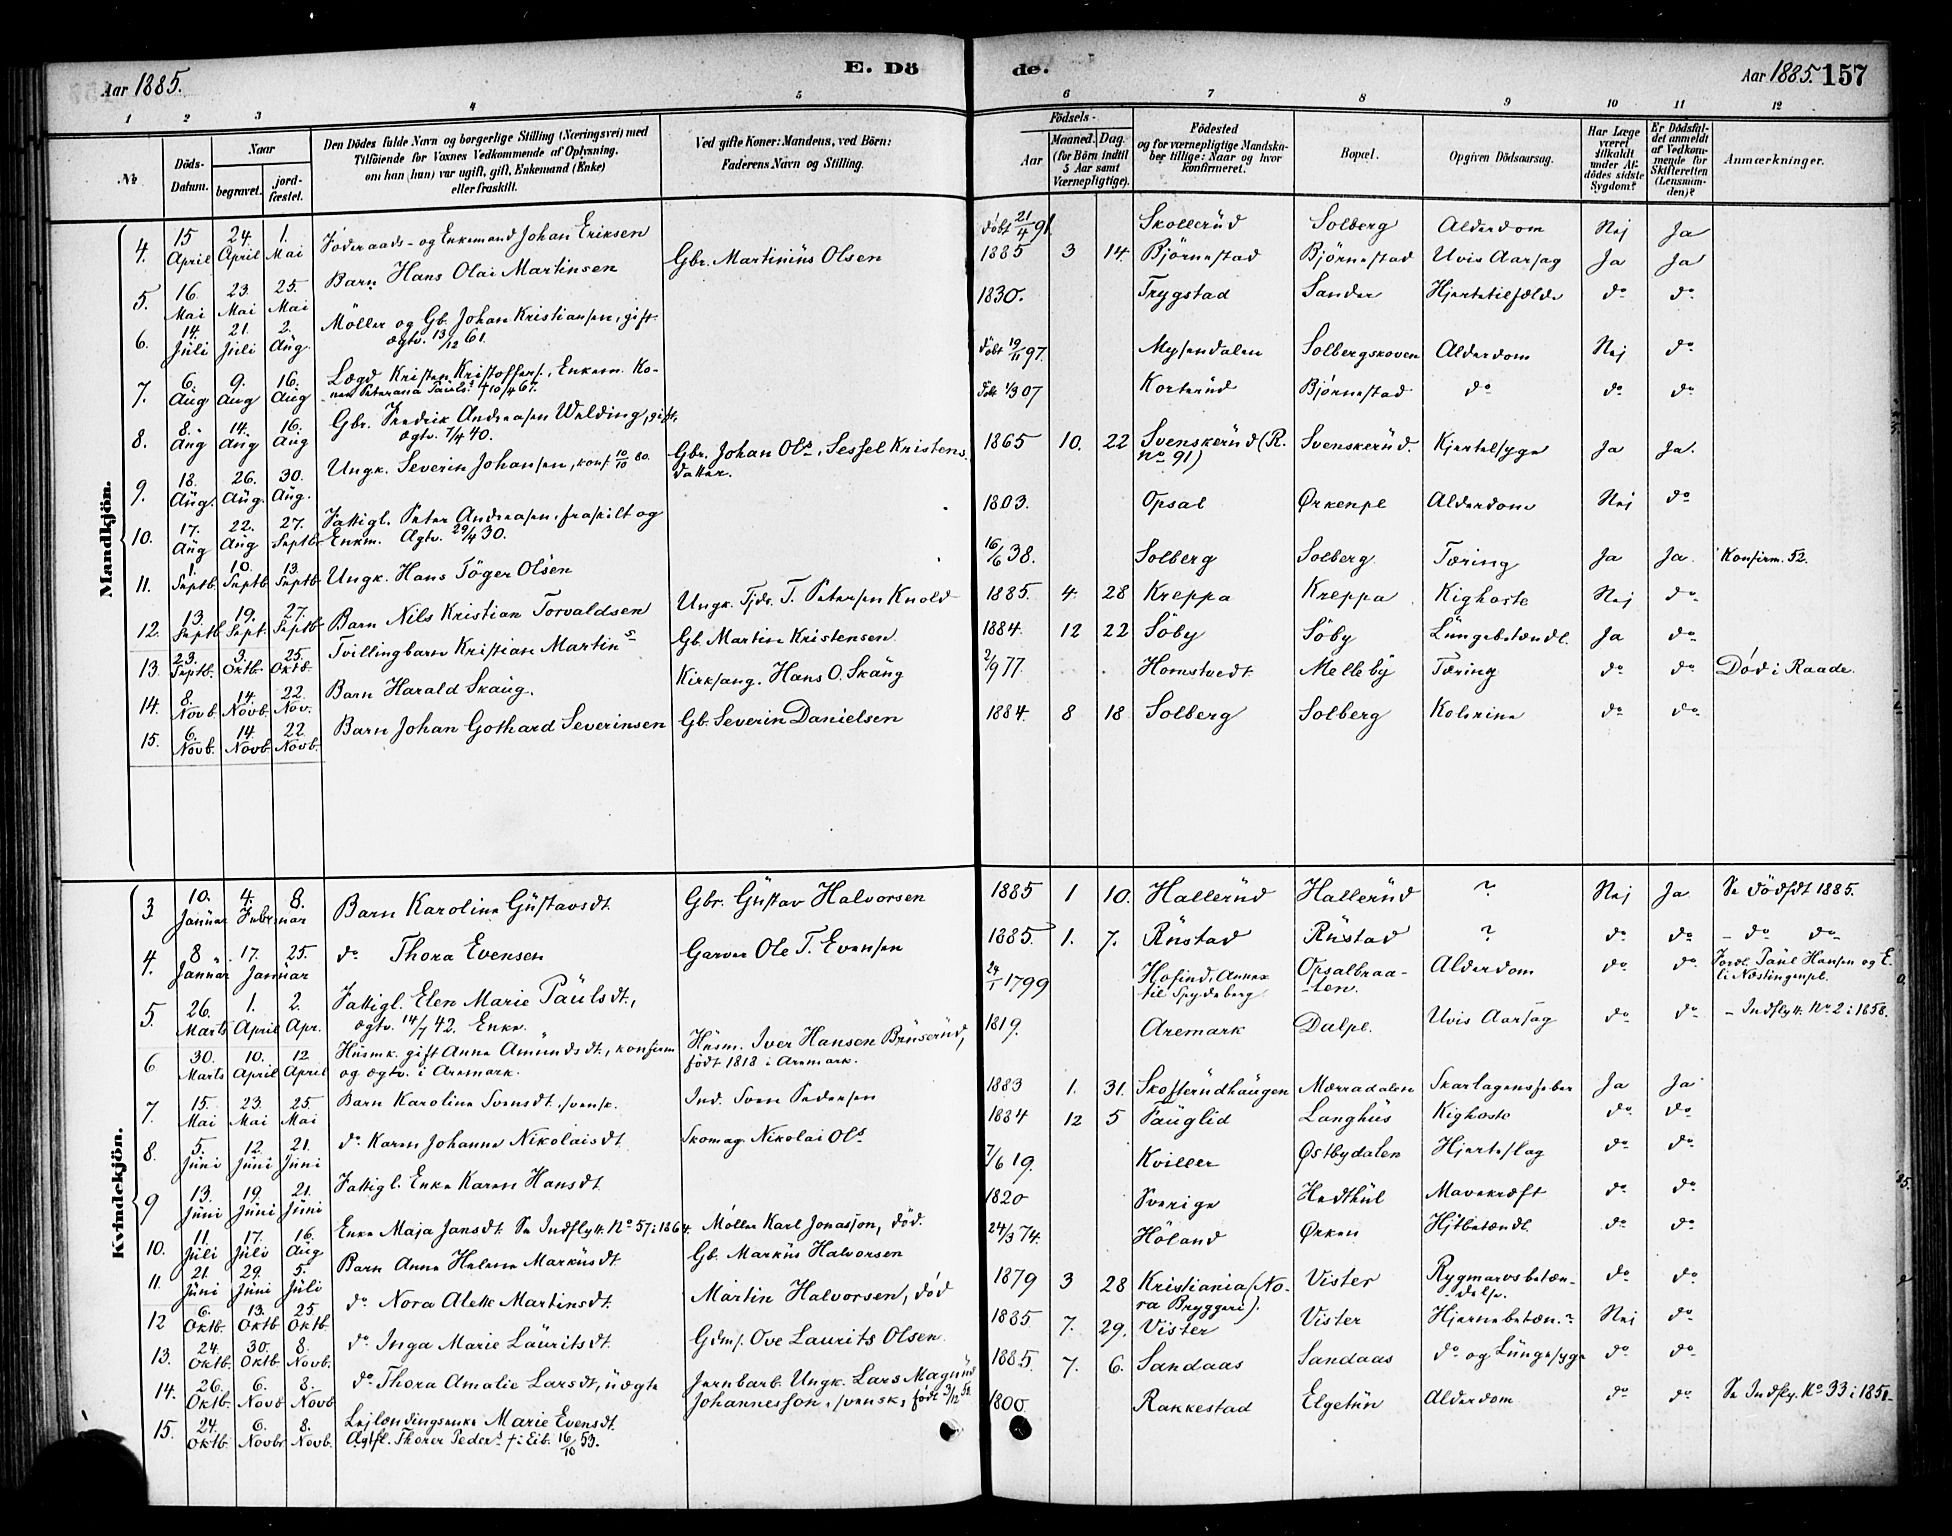 Aar 1885.
E. Dö
de.
Aar 1885. 157
1 2 3 4 5 6 7 8 9 10 11 12
№
Döds-Datum.
Naar
begravet.
jordfæstet.
Den Dödes fulde Navn og borgerlige Stilling (Næringsvei) med
Tilföiende for Voxnes Vedkommende af Oplysning,
om han (hun) var ugift, gift, Enkemand (Enke)
eller fraskilt.
Ved gifte Koner: Mandens, ved Börn:
Faderens Navn og Stilling.
Födsels-
Aar
Maaned. Dag.
(for Börn indtil
5 Aar samt
Værnepligtige).
Födested
og for værnepligtige Mandskaber tillige: Naar og hvor
konfirmeret.
Bopæl.
Opgiven Dödsaarsag.
Har Læge været tilkaldt under Afdödes sidste Sygdom?
Er Dödsfaldet anmeldt af Vedkommende for Skifteretten (Lensmanden)?
Anmærkninger.
Mandkjön.
4. 15 April 24. April 1. Mai Föderaads- og Enkemand Johan Eriksen döbt 21/4 91 Skollerüd Solberg Alderdom Nej Ja
5. 16. Mai 23. Mai 25. Mai Barn Hans Olai Martinsen Gbr. Martinius Olsen 1885 3 14. Björnestad Björnestad Uvis Aarsag Ja Ja
6. 14. Juli 21. Juli 2. Aug. Möller og Gb. Johan Kristiansen, gift. ægtv. 13/12 61. 1830. Trygstad Sander Hjertetilfælde do do
7. 6. Aug 9. Aug 16. Aug Lægd Kristen Kristoffers., Enkem. Konen Peterana Pauls. † 10/4 67. döbt 19/11 97. Mysendalen Solbergskoven Alderdom Nej do
8. 8. Aug 14. Aug 16. Aug Gbr. Fredrik Andreasen Walding, gift, ægtv. 7/4 40. Födt 1/3 07 Korterüd Björnestad do do do
9. 18. Aug. 26. Aug. 30. Aug. Ungk. Severin Johansen, konf 10/10 80. Gbr. Johan Ols., Sessel Kristensdatter. 1865 10. 22 Svenskerüd (R. no 91) Svenskerüd. Kjertelsyge Ja Ja.
10. 17. Aug 22. Aug 27. Septb Fattigl. Peter Andreasen, fraskilt og Enkm. Ægtv. 29/4 30. 1803. Opsal Ørkenpl Alderdom Nej do
11. 1. Septb 10. Septb 13. Septb Ungk. Hans Töger Olsen 16/6 38. Solberg Solberg. Tæring Ja Ja. Konfirm. 52.
12. 13. Septb 19. Sept. 27. Septb Barn Nils Kristian Torvaldsen Ungk. Tjds. T. Petersen Knold 1885 4. 28 Kreppa Kreppa Kighoste Nej do
13. 23. Septb. 3. Oktb. 25. Oktb. Tvillingbarn Kristian Martins Gb. Martin Kristensen. 1884. 12 22 Söby Söby Lungebetændl. Ja do
14. 8. Novb 14. Novb. 22. Nov. Barn Harald Skaug. Kirksang. Hans O. Skaug 2/9 77 Homstvedt. Melleby Tæring do do Död i Raade.
15. 6. Novb. 14. Novb. 22. Novb. Barn Johan Gothard Severinsen Gb. Severin Danielsen 1884 8 18 Solberg Solberg Kolerine do do
Kvindekjön.
3. 10. Januar 4. Februar 8. Barn Karoline Gustavsdt. Gbr. Gustav Halvorsen 1885 1 10. Hallerüd Hallerüd ? Nej Ja Se dödfdt 1885.
4. 8 Januar 17. Januar 25. do Thora Evensen Garver Ole T. Evensen 1885. 1. 7. Rustad Rustad ? do do - do do
5. 26. Marts 1. April 2. Apr. Fattigl. Elen Marie Paulsdt., ægtv. 14/7 42. Enke. 24/1 1799 Hofind, Annex til Spydeberg Opsalbraaten. Alderdom do do Foræl. Paul Hansen og Eli Næstingenpl.
6 30. Marts 10. April 12 April Husmk. gift Anne Amundsdt., konfirm og ægtv. i Aremark. Husm. Iver Hansen Bruserüd, födt 1818 i Aremark. 1819. Aremark Dalpl. Uvis Aarsag do do - Indflytt. No 2 i 1858.
7 15. Mai 23. Mai 25. Mai Barn Karoline Svensdt. svensk. Ind. Sven Pedersen 1883 1. 31. Skofterudhaugen Mærradalen Skarlagensfeber Ja Ja
8. 5. Juni 12. Juni 21. Juni do Karen Johanne Nikolaisdt. Skomag. Nikolai Ols 1884 12 5 Fauglid Langhus Kighoste do do
9 13. Juni 19. Juni 21. Juni Fattigl. Enke Karen Hansdt. 7/6 19. Kviller Østbydalen Hjerteslag do do
10. 11. Juli 17. Juli 16. Aug Enke Maja Jansdt. Se Indflytt. No 57 i 1864. Møller Karl Jonasson, død. 1820 Sverige Hedthul Mavekræft do do
11. 21. Juni 29. Juni 5. Juli Barn Anne Helene Markusdt. Gb. Markus Halvorsen 24/3 74. Höland Ørken Hjtbetændl. do do
12 6. Oktb. 13. Oktb. 25. Oktb. do Nora Alette Martinsdt. Martin Halvorsen, död 1879 3 28 Kristiania (Nora Bryggeri). Vister Rygmarvsbetændelse. do do
13. 24. Oktb. 30. Oktb 8. Novb. do Inga Marie Lauritsdt. Gdms. Ove Laurits Olsen. 1885 7. 29. Vister Vister Hjernebetæn.? Nej do
14. 26. Oktb. 6. Novb 8. Novb do Thora Amalie Larsdt, uægte Jernbarb. Ungk. Lars Magnüd Johannesson, svensk, födt 3/12 52. 1885. 7. 6. Sandaas Sandaas do og Lungesyge do do
15. 24. Oktb. 6. Novbr 8. Novb. Leilændingsenke Marie Evensdt. Ægtfl. Thorer Peders. † i Eib. 16/10 53. 1800. Rakkestad Elgetun Alderdom do do Se Indfly. No 33 i 1851.